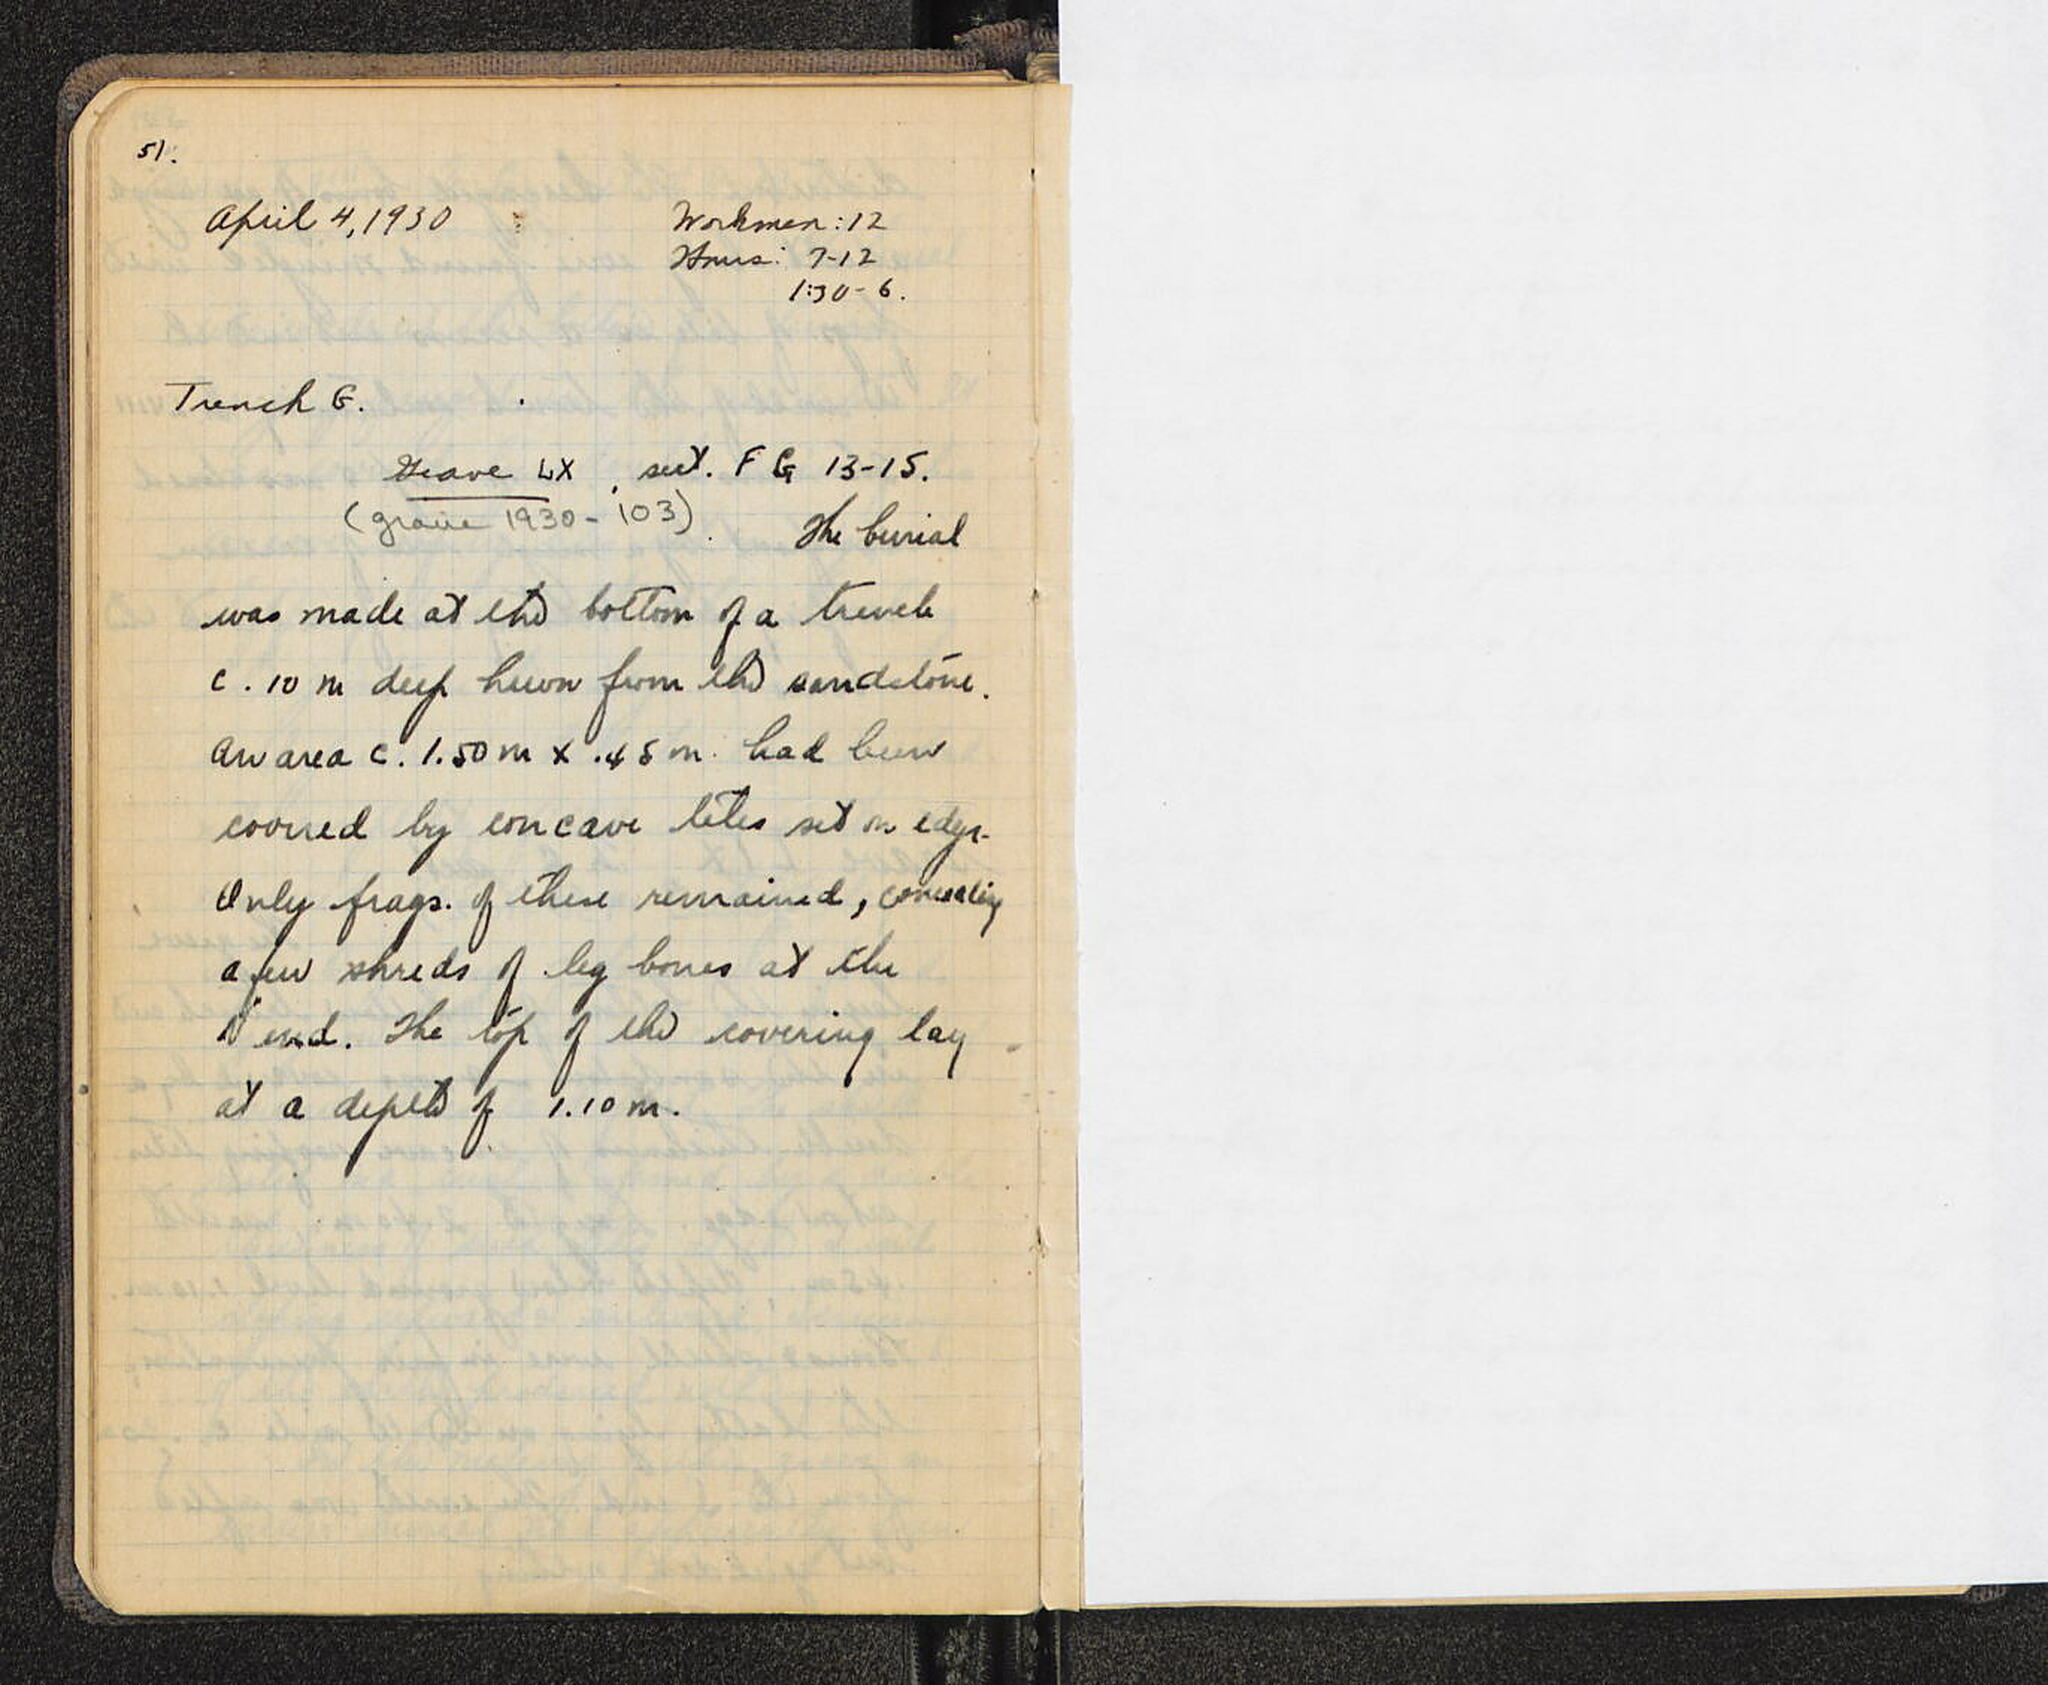 51.
April 4, 1930
Workmen: 12
Hours: 7-12
1:30-6.
Trench G.
Grave LX, sect. F G 13-15.
(grave 1930-103)
The burial
was made at the bottom of a trench
c. .10 m deep hewn from the sandstone.
An area c. 1.50 m x .45 m. had been
covered by concave tiles set on edge.
Only frags. of these remained, concealing
a few shreds of leg bones at the
N end. The top of the covering lay
at a depth of 1.10 m.